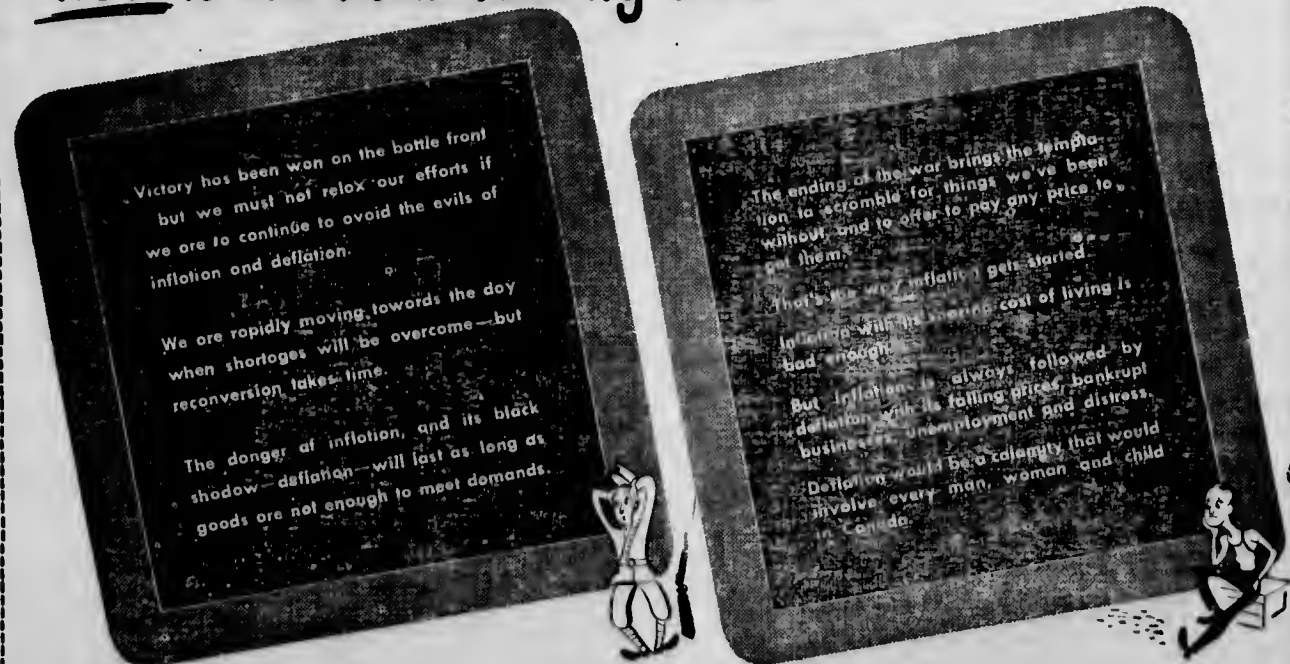 Victory has been won on the battle front
but we must not relax our efforts if
we are to continue to avoid the evils of
inflation and deflation.
We are rapidly moving towards the day
when shortages will be overcome—but
reconversion takes time.
The danger of inflation, and its black
shadow—deflation—will last as long as
goods are not enough to meet demands.
The ending of the war brings the tempta-
tion to scramble for things we've been
without, and to offer to pay any price to
get them.
That's the way inflation gets started.
Inflation with its soaring cost of living is
bad enough.
But inflation is always followed by
deflation with its falling prices, bankrupt
businesses, unemployment and distress.
Deflation would be a calamity that would
involve every man, woman and child
in Canada.